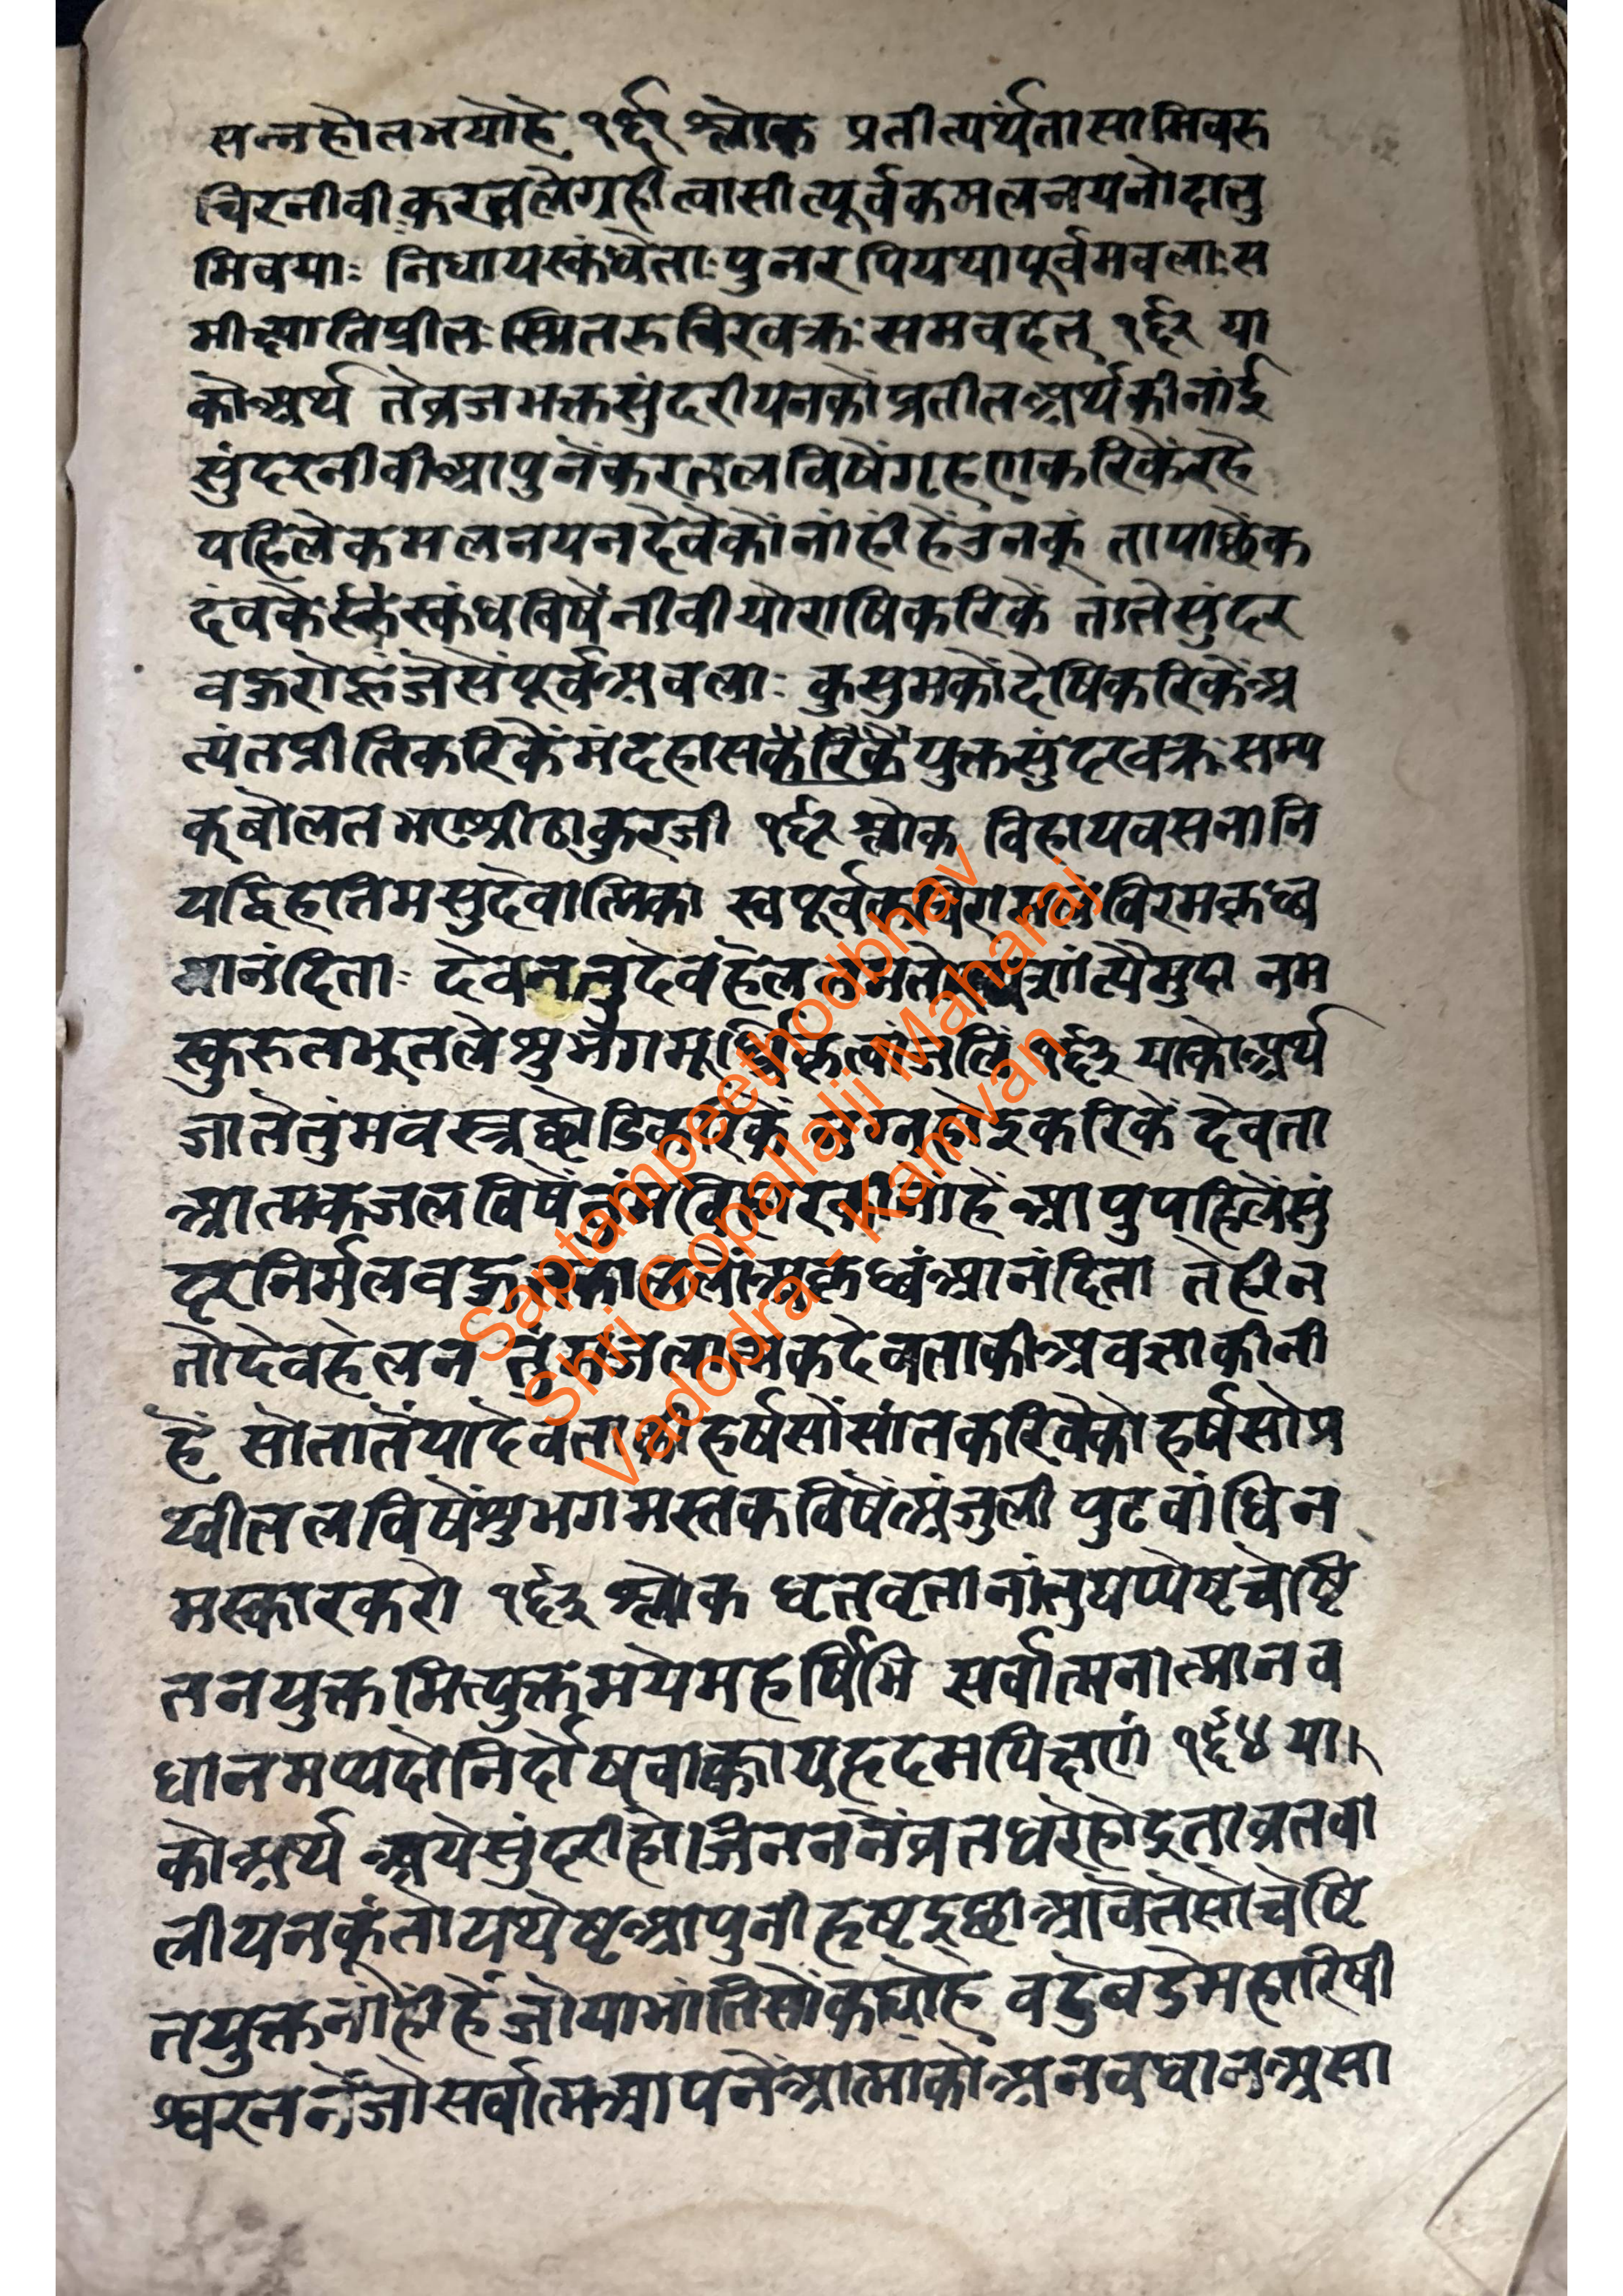 सन्नहोतभयोहै १६१ श्लोक प्रतीत्यर्थंतासामिवरु
चिरनीवीकरतलैगृहीत्वासीत्पूर्वकमलनयनोदातु
मिवयाः निधायस्कंधेताःपुनरपिययापूर्वमवलाःस
मीक्ष्यातिप्रीतःस्मितरुचिरवक्रःसमवदत् १६२ या
कोअर्थ तेव्रजभक्तसुंदरीयनकोंप्रतीतअर्थकीनांई
सुंदरनीवीआपुनेंकरतलविषैंगृहणकरिकेंरहै
पहिलेकमलनयनदेवेकोंनांहींहेंउनकूं तापाछेंक
दंवकेस्कंधविषैंनीवीयोराषिकरिकें तातेसुंदर
जैसेंपूर्वअवलाः कुसुमकोंदेषिकरिकेंअ
त्यंतप्रीतिकरिकेंमंदहासकरिकेंयुक्तसुंदरवक्रःसम्य
क्बोलतभएश्रीठाकुरजी १६२ श्लोक विहायवसनानि
स्वपूर्व
मानंदिताः देवनतुदेवहेल त्यैमुदा नम
स्कुरुतभूतलेशुभगमूर्ध्नि १६३ याकोअर्थ
जातेतुंमवस्त्रछोडिकरिकें नग्नहोइकरिकें देवता
आत्मकजलविषें आपुपहिलेंसुं
दरनिर्मल आनंदिता तेहीन
तोदेवहेलन देवताकीअवज्ञाकीनी
हैं सोतातेंयादेवताकीहर्षसोंसांतकरिवेकोहर्षसोप्र
थ्वीतलविषेंशुभगमस्तकविषेंअंजुलीपुटवांधिन
मस्कारकरो १६३ श्लोक धृतवृतानांतुयप्पेषृचेष्टि
तनयुक्तमित्युक्तमयेमहर्षिभि सर्वात्मनात्मानव
धानमप्यदोनिर्दोषवाक्कायहृदमपिक्षणं १६४ या
कोअर्थ अयेसुंदरीहोजिनननेंव्रतधरेहोइताव्रतवा
लीयनकूंतोयथेषृआपुनीहृषृइछाआवेतेसोचेष्टि
तयुक्तनांहींहेंजोयाभांतिसोंकह्योहे वडेबडेमहारिषी
श्वरननेंजोसर्वात्मआपनेंआत्माकोअनवधानअसा
Saptampeethodbhav
Shri Gopallalji Maharaj
Vadodra - Kamvan